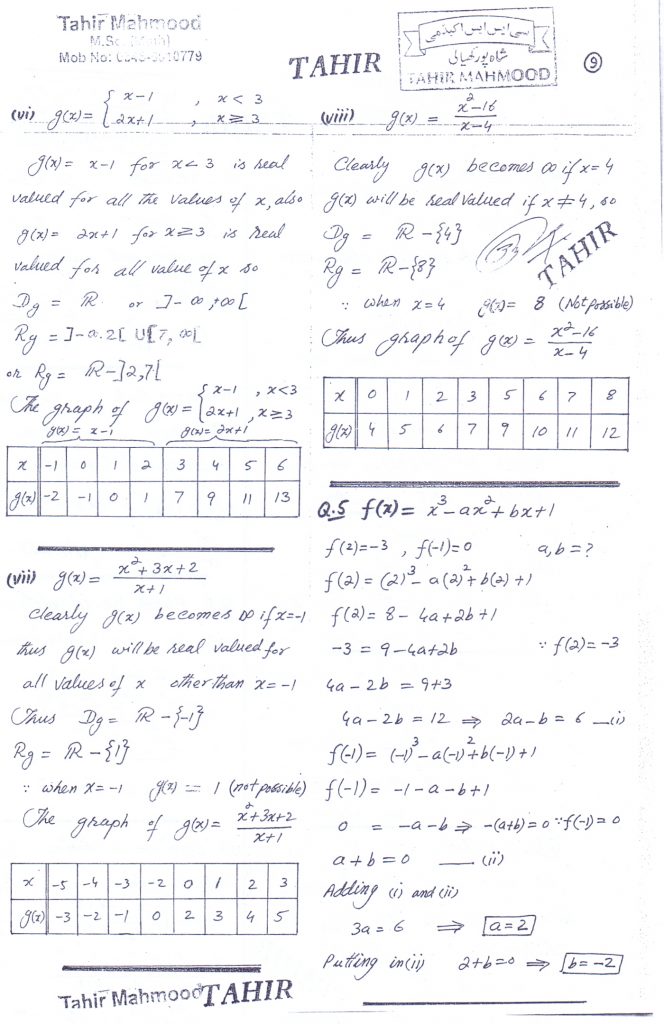 Tahir Mahmood
M.Sc. (Math)
Mob No:
TAHIR
سی ایس ایس اکیڈمی
شاہ پور کنجیالی
TAHIR MAHMOOD
9
(vi) g(x) = { x-1 , x < 3
2x+1 , x ≥ 3
g(x) = x-1 for x < 3 is real
valued for all the values of x, also
g(x) = 2x+1 for x ≥ 3 is real
valued for all value of x so
Dg = ℝ or ]-∞, +∞[
Rg = ]-∞, 2[ U[7, ∞[
or Rg = ℝ-]2,7[
The graph of g(x) = { x-1 , x<3
2x+1 , x≥3
g(x) = x-1 g(x) = 2x+1
x -1 0 1 2 3 4 5 6
g(x) -2 -1 0 1 7 9 11 13
(vii) g(x) = x²+3x+2 / x+1
Clearly g(x) becomes ∞ if x=-1
thus g(x) will be real valued for
all values of x other than x = -1
Thus Dg = ℝ-{-1}
Rg = ℝ-{1}
∵ when x=-1 g(x) = 1 (not possible)
The graph of g(x) = x²+3x+2 / x+1
x -5 -4 -3 -2 0 1 2 3
g(x) -3 -2 -1 0 2 3 4 5
Tahir Mahmood TAHIR
(viii) g(x) = x²-16 / x-4
Clearly g(x) becomes ∞ if x=4
g(x) will be real valued if x≠4, so
Dg = ℝ-{4}
Rg = ℝ-{8}
TAHIR
∵ when x=4 g(x) = 8 (Not possible)
Thus graph of g(x) = x²-16 / x-4
x 0 1 2 3 5 6 7 8
g(x) 4 5 6 7 9 10 11 12
Q.5 f(x) = x³-ax²+bx+1
f(2)=-3 , f(-1)=0 a,b=?
f(2) = (2)³-a(2)²+b(2)+1
f(2) = 8-4a+2b+1
-3 = 9-4a+2b ∵ f(2)=-3
4a-2b = 9+3
4a-2b = 12 ⇒ 2a-b = 6 —(i)
f(-1) = (-1)³-a(-1)²+b(-1)+1
f(-1) = -1-a-b+1
0 = -a-b ⇒ -(a+b)=0 ∵f(-1)=0
a+b=0 — (ii)
Adding (i) and (ii)
3a = 6 ⇒ a=2
Putting in (ii) 2+b=0 ⇒ b=-2